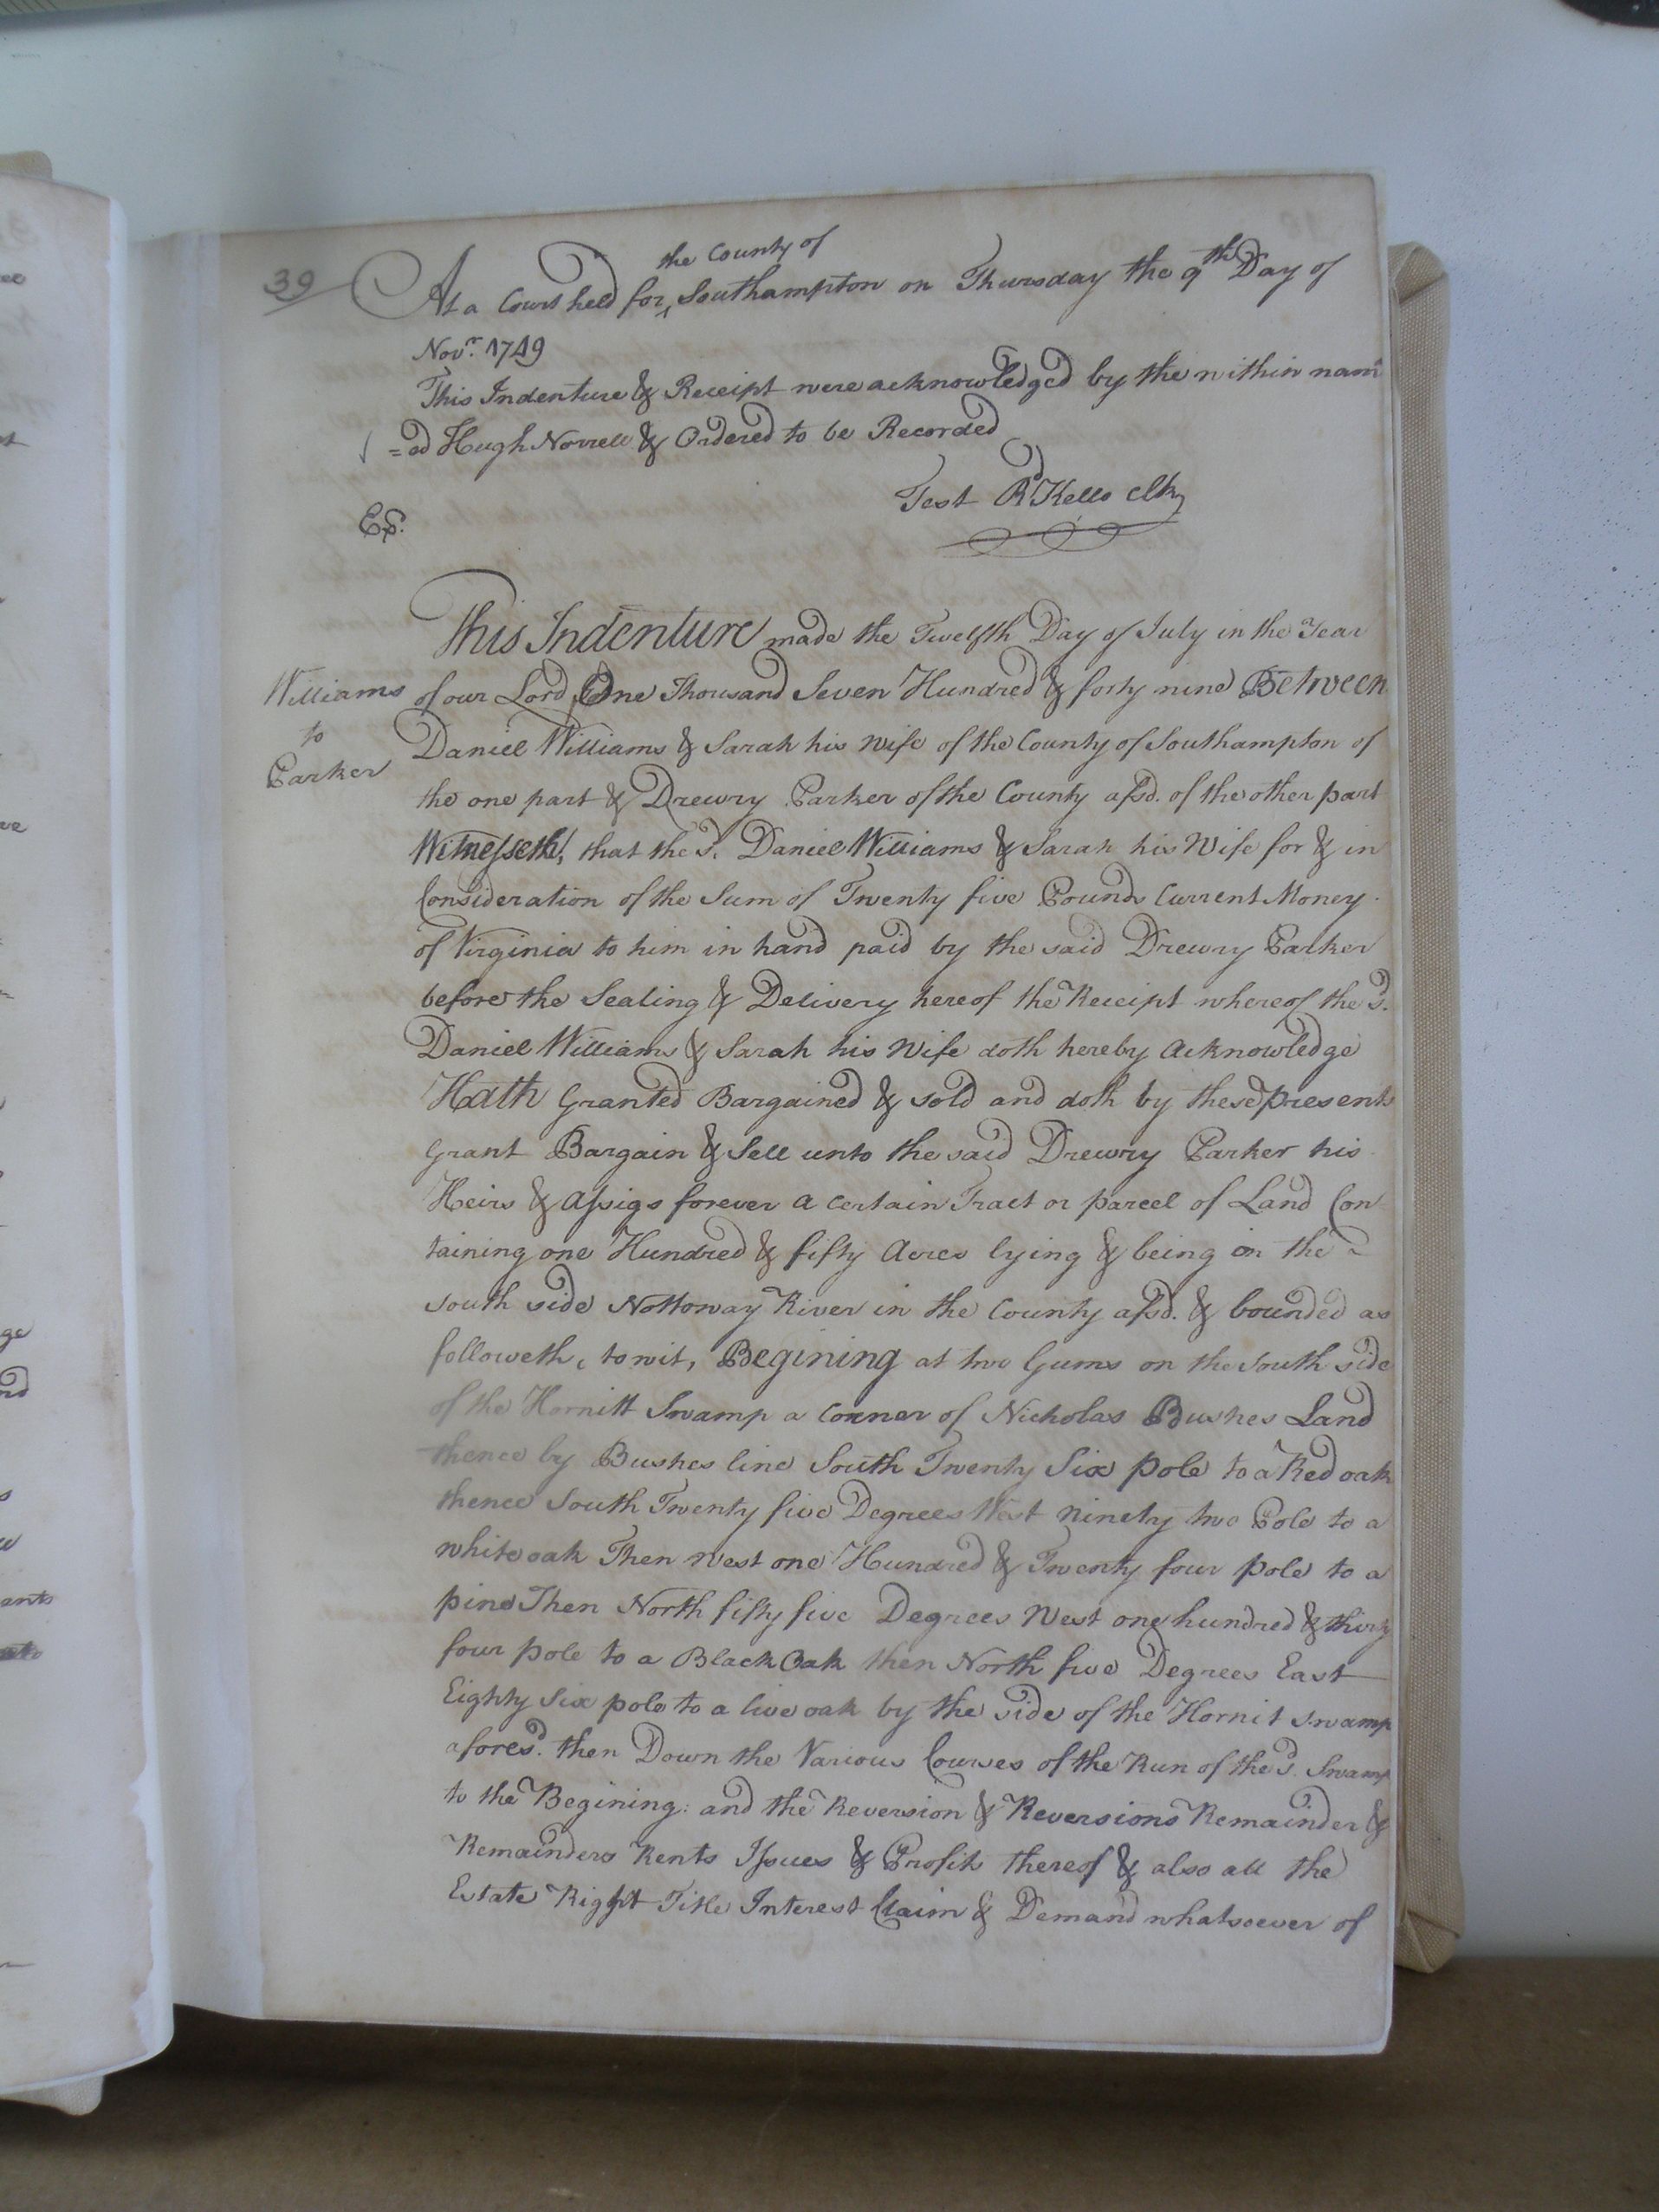 39
the County of
At a Court held for ‸ Southampton on Thursday the 9th Day of
Novr. 1749
This Indenture & Receipt were acknowledged by the within nam
=ed Hugh Norvell & Ordered to be Recorded
Test Rd Kello Clk
Ex.
This Indenture made the Twelfth Day of July in the Year
Williams
to
Parker
of our Lord One Thousand Seven Hundred & forty nine Between
Daniel Williams & Sarah his Wife of the County of Southampton of
the one part & Drewry Parker of the County afsd. of the other part
Witnesseth, that the sd. Daniel Williams & Sarah his Wife for & in
Consideration of the Sum of Twenty five Pounds Current Money
of Virginia to him in hand paid by the said Drewry Parker
before the Sealing & Delivery hereof the Receipt whereof the sd.
Daniel Williams & Sarah his Wife doth hereby Acknowledge
Hath Granted Bargained & sold and doth by these presents
Grant Bargain & Sell unto the said Drewry Parker his
Heirs & Assigs forever a certain Tract or parcel of Land Con
taining one Hundred & fifty Acres lying & being on the
south side Nottoway River in the County afsd. & bounded as
followeth, to wit, Begining at two Gums on the South side
of the Hornitt Swamp a Corner of Nicholas Bushes Land
thence by Bushes line South Twenty Six pole to a Red oak
thence South Twenty five Degrees West Ninety two Pole to a
white oak Then West one Hundred & Twenty four pole to a
pine Then North fifty five Degrees West one hundred & thirty
four pole to a Black Oak then North five Degrees East
Eighty Six pole to a live oak by the side of the Hornit swamp
aforesd. then Down the Various Courses of the Run of the sd. Swamp
to the Begining: and the Reversion & Reversions Remainder &
Remainders Rents Issues & Profits thereof & also all the
Estate Right Title Interest Claim & Demand whatsoever of